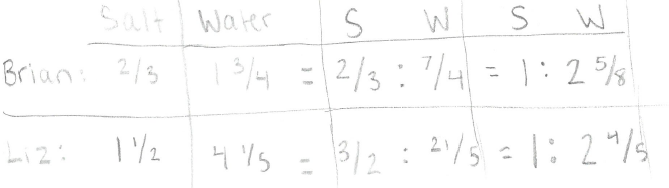 Salt Water S W S W
Brian: 2/3 1 3/4 = 2/3 : 7/4 = 1 : 2 5/8
Liz: 1 1/2 4 1/5 = 3/2 : 21/5 = 1 : 2 4/5